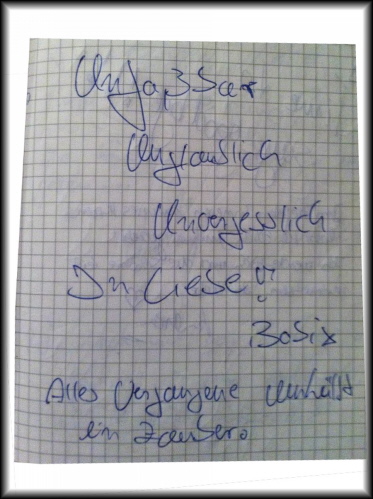 Unfaßbar
Unglaublich
Unvergesslich
In Liebe!
Alles Vergangene umhüllt
ein Zauber.